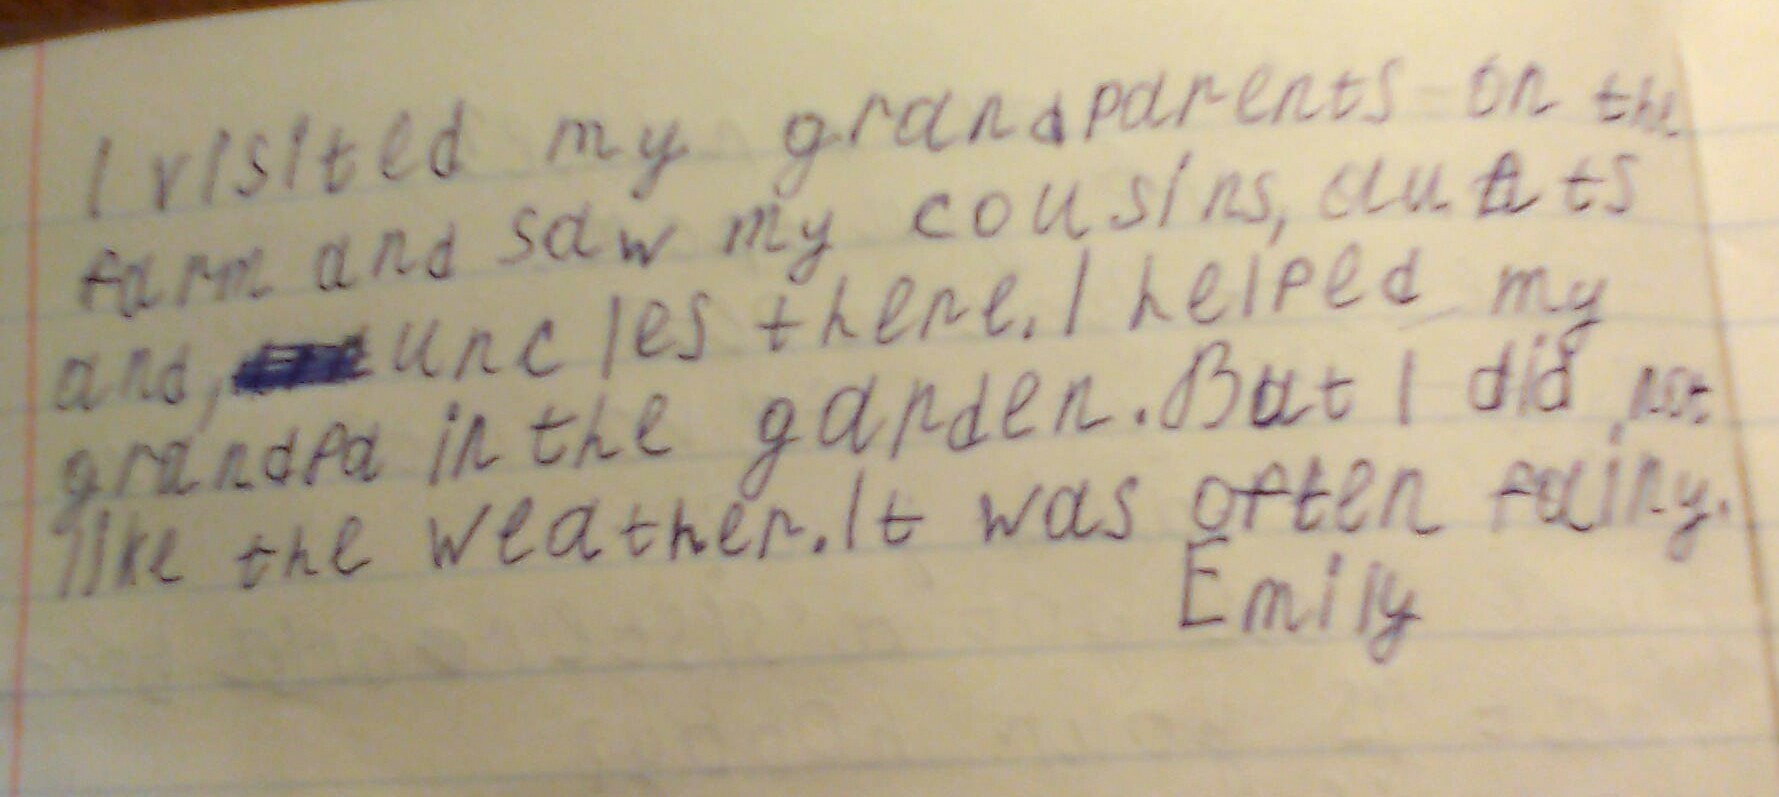 I visited my grandparents on the
farm and saw my cousins, aunts
and, uncles there. I helped my
grandpa in the garden. But I did not
like the weather. It was often fainy.
Emily